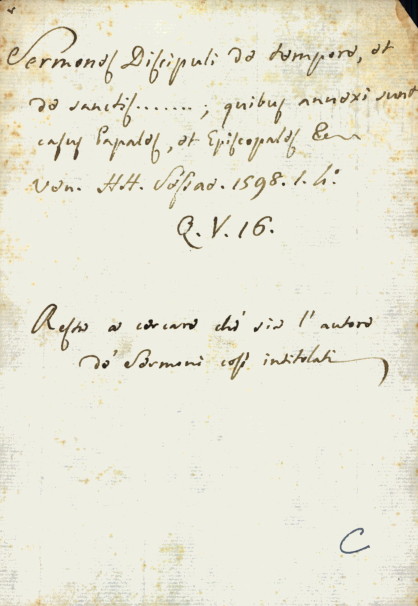 Sermones Discipuli de tempore, et
de sanctis.......; quibus annexi sunt
casus Papales, et Episcopales &c
Ven. HH. Sessae. 1598. 1. 4.º
Q. V. 16.
Resta a cercare chè sia l'autore
de' Sermoni così intitolati
C